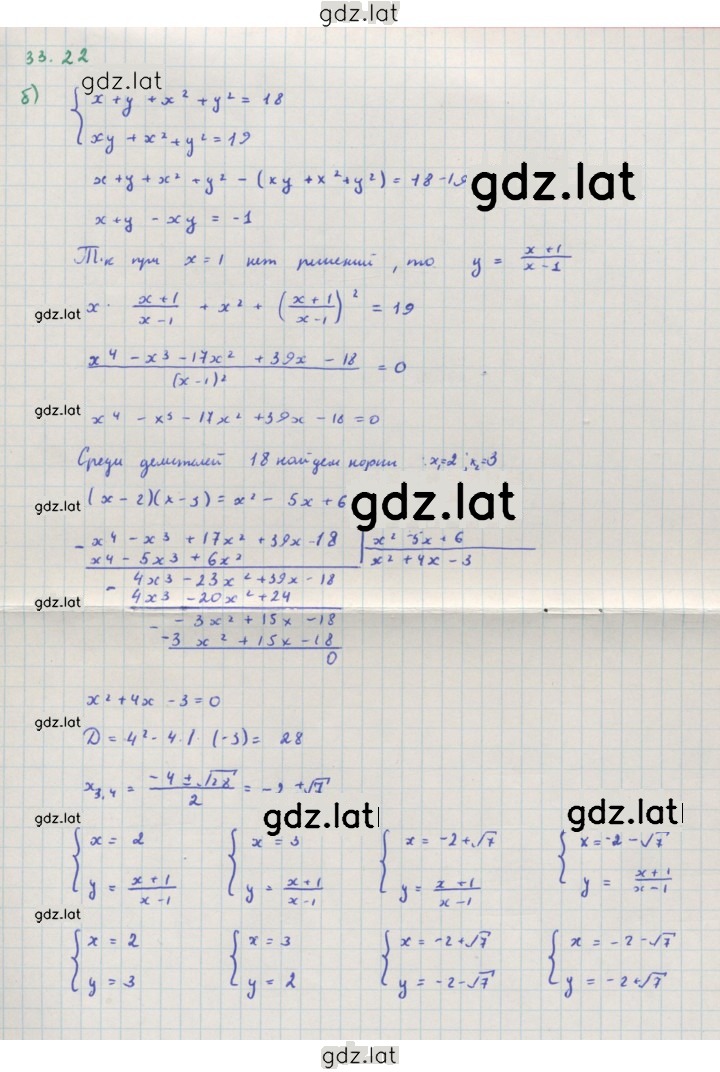 gdz.lat
33.22
gdz.lat
б) { x + y + x² + y² = 18
xy + x² + y² = 19
x + y + x² + y² - (xy + x² + y²) = 18 - 19
gdz.lat
x + y - xy = -1
Т.к при x = 1 нет решений, то y = (x + 1)/(x - 1)
gdz.lat
x · (x + 1)/(x - 1) + x² + ((x + 1)/(x - 1))² = 19
(x⁴ - x³ - 17x² + 39x - 18)/(x - 1)² = 0
gdz.lat
x⁴ - x³ - 17x² + 39x - 18 = 0
Среди делителей 18 найдем корни x₁=2; x₂=3
gdz.lat
(x - 2)(x - 3) = x² - 5x + 6
gdz.lat
- x⁴ - x³ + 17x² + 39x - 18 | x² - 5x + 6
x⁴ - 5x³ + 6x² | x² + 4x - 3
- 4x³ - 23x² + 39x - 18
gdz.lat
4x³ - 20x² + 24
- - 3x² + 15x - 18
-3x² + 15x - 18
0
x² + 4x - 3 = 0
gdz.lat
D = 4² - 4·1·(-3) = 28
x₃,₄ = (-4 ± √28)/2 = -, +√7
gdz.lat
gdz.lat
gdz.lat
{ x = 2 { x = 3 { x = -2 + √7 { x = -2 - √7
y = (x + 1)/(x - 1) y = (x + 1)/(x - 1) y = (x + 1)/(x - 1) y = (x + 1)/(x - 1)
gdz.lat
{ x = 2 { x = 3 { x = -2 + √7 { x = -2 - √7
y = 3 y = 2 y = -2 - √7 y = -2 + √7
gdz.lat